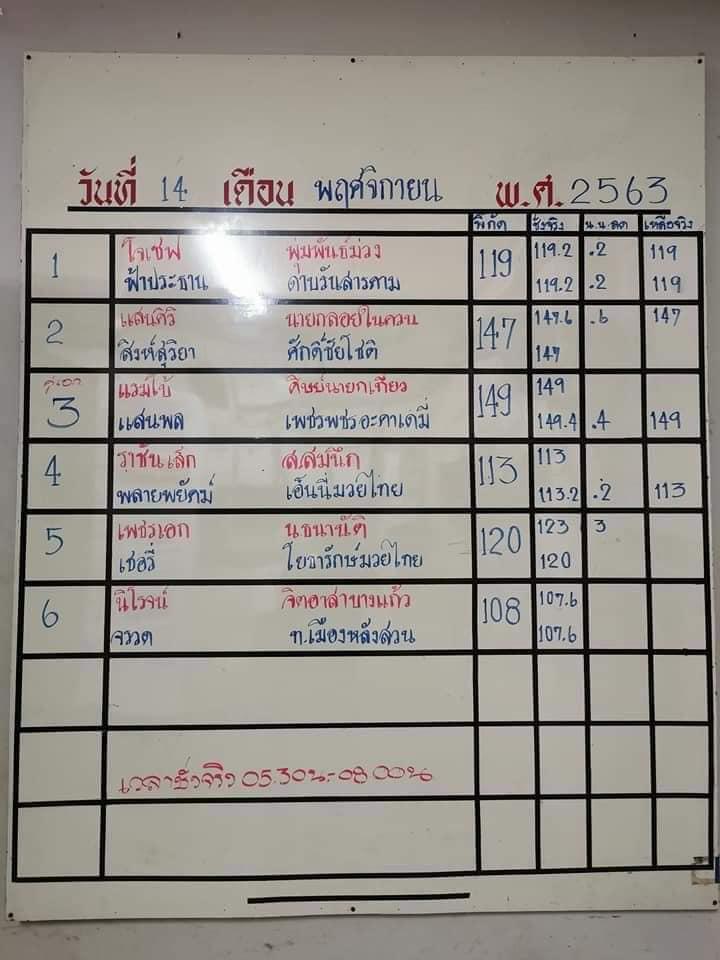 วันที่ 14 เดือน พฤศจิกายน พ.ศ. 2563
พิกัด ชั่งจริง น.น.ลด เหลือจริง
1 โจเซฟ พุ่มพันธ์ม่วง 119 119.2 .2 119
ฟ้าประธาน ดาบรันสารคาม 119.2 .2 119
2 แสนคิริ นายกลอยในควน 147 147.6 .6 147
สิงห์สุริยา ศักดิ์ชัยโชติ 147
คู่เอก
3 แวมไบ้ ศิษย์นายกเกียว 149 149
แสนพล เพชรพชรอะคาเดมี่ 149.4 .4 149
4 ราชันเล็ก ส.สมนึก 113 113
พลายพยัคฆ์ เอ็นนี่มวยไทย 113.2 .2 113
5 เพชรเอก นธนานัติ 120 123 3
เชอรี่ โยธารักษ์มวยไทย 120
6 นิโรจน์ จิตอาสาบางแก้ว 108 107.6
จรวด ท.เมืองหลังสวน 107.6
เวลาชั่งจริง 05.30น-08.00น